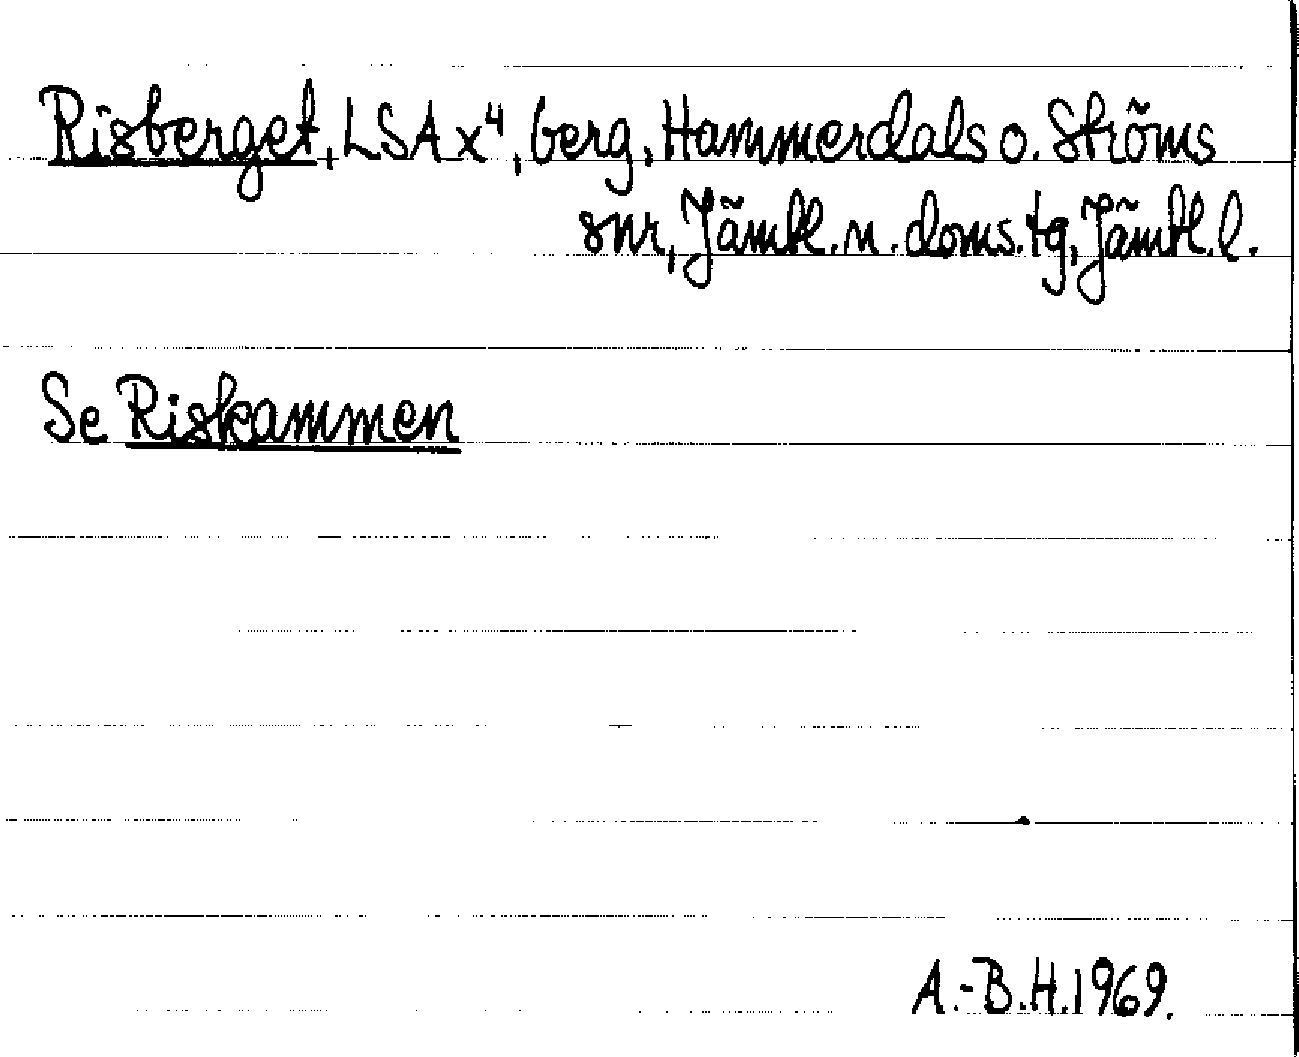 Risberget, LSA x⁴, berg, Hammerdals o. Ströms
snr, Jämtl. n. doms.tg, Jämtl. l.
Se Riskammen
A.-B.H. 1969.